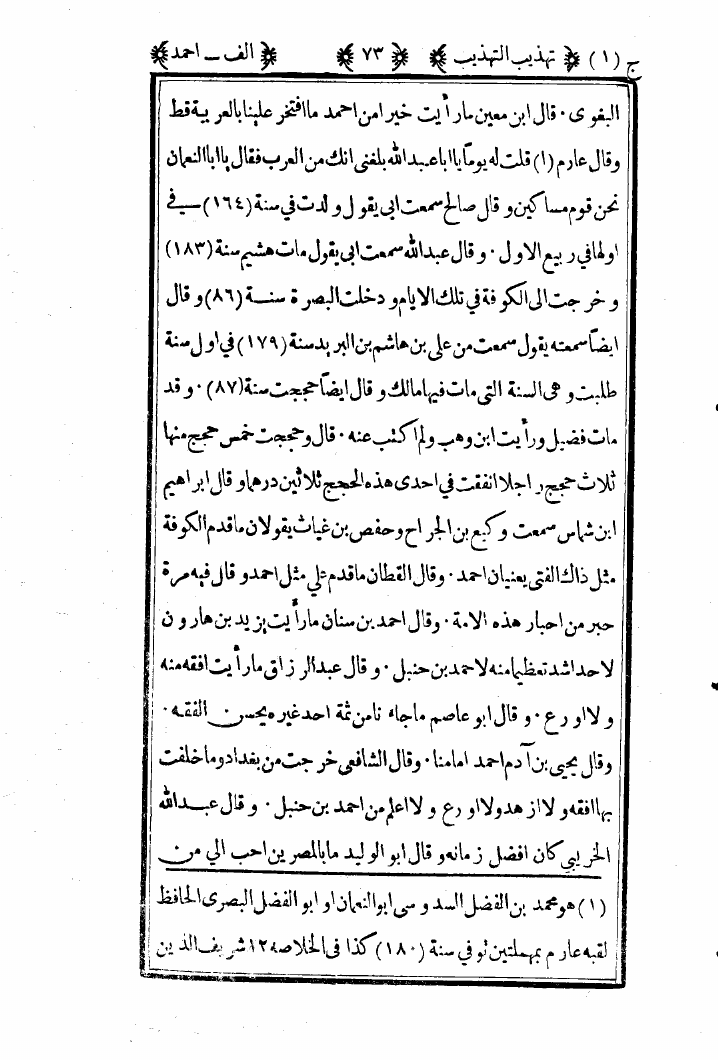 ج (١) تهذيب التهذيب ٧٣ الف ـ احمد
البغوى · قال ابن معين ما رأيت خيرا من احمد ما افتخر علينا بالعربية قط
وقال عارم (١) قلت له يوماً يا ابا عبد الله بلغنى انك من العرب فقال يا ابا النعمان
نحن قوم مساكين و قال صالح سمعت ابى يقول ولدت في سنة (١٦٤) فے
اولها في ربيع الاول · وقال عبد الله سمعت ابى يقول مات هشيم سنة (١٨٣)
وخرجت الى الكوفة في تلك الايام و دخلت البصرة سنة (٨٦) وقال
ايضاً سمعته يقول سمعت من على بن هاشم بن البريد سنة (١٧٩) في اول سنة
طلبت و هى السنة التى مات فيها مالك و قال ايضاً حججت سنة (٨٧) · وقد
مات فضيل ورأيت ابن وهب ولم اكتب عنه · قال وحججت خمس حجج منها
ثلاث حجج راجلا انفقت في احدى هذه الحجج ثلاثين درهما و قال ابراهيم
ابن شماس سمعت وكيع بن الجراح و حفص بن غياث يقولان ما قدم الكوفة
مثل ذاك الفتى يعنيان احمد · وقال القطان ما قدم على مثل احمد و قال فيه مرة
حبر من احبار هذه الامة · وقال احمد بن سنان ما رأيت يزيد بن هارون
لاحد اشد تعظيما منه لاحمد بن حنبل · وقال عبد الرزاق ما رأيت افقه منه
ولا اورع · و قال ابو عاصم ما جاء نا من ثمة احد غيره يحسن الفقه ·
وقال يحيى بن آدم احمد امامنا · وقال الشافعى خرجت من بغداد وما خلفت
بها افقه ولا ازهد ولا اورع ولا اعلم من احمد بن حنبل · وقال عبد الله
الخريبى كان افضل زمانه و قال ابو الوليد ما بالمصرين احب الي من
(١) هو محمد بن الفضل السدوسى ابو النعمان او ابو الفضل البصرى الحافظ
لقبه عارم بمهملتين توفي سنة (١٨٠) كذا فى الخلاصه ١٢ شريف الدين